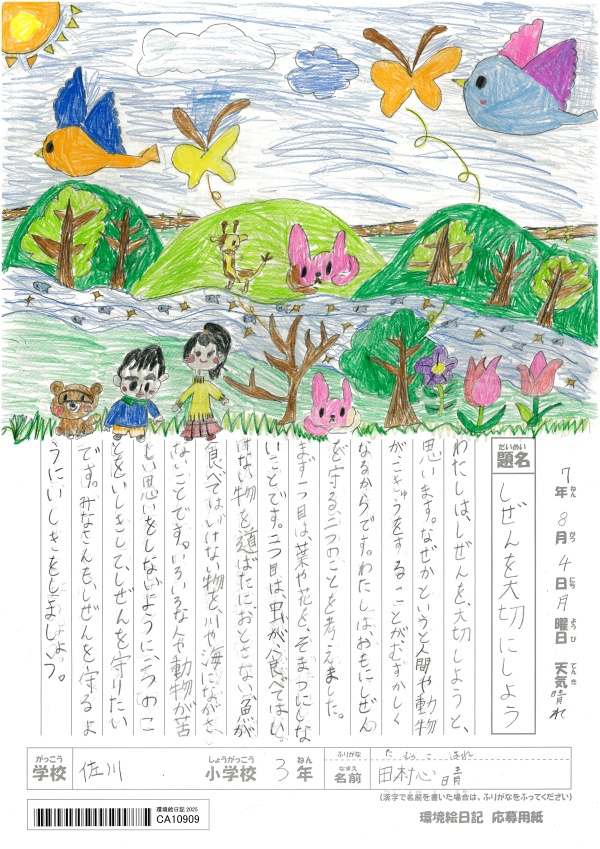 7年ねん8月がつ4日にち月曜日ようび 天気てんき 晴れ
だいめい
題名 しぜんを大切にしよう
わたしは、しぜんを、大切しようと、
思います。なぜかというと人間や動物
がこきゅうをすることがむずかしく
なるからです。わたしは、おもにしぜん
を守る、二つのことを考えました。
まず一つ目は、葉や花を、ぞまつにしな
いことです。二つ目は、虫が食べてはい
けない物を道ばたにおとさない魚が
食べてはいけない物を川や海にながさ
ないことです。いろいろな人や動物が苦
しい思いをしないように、二つのこ
とをいしきして、しぜんを守りたい
です。みなさんも、しぜんを、守るよ
うにいしきをしましょう。
がっこう しょうがっこう ねん ふりがな たむらこはれ
学校 佐川 小学校 3年 なまえ 名前 田村心晴
(漢字で名前を書いた場合は、ふりがなをふってください)
環境絵日記 2025
CA10909
環境絵日記 応募用紙